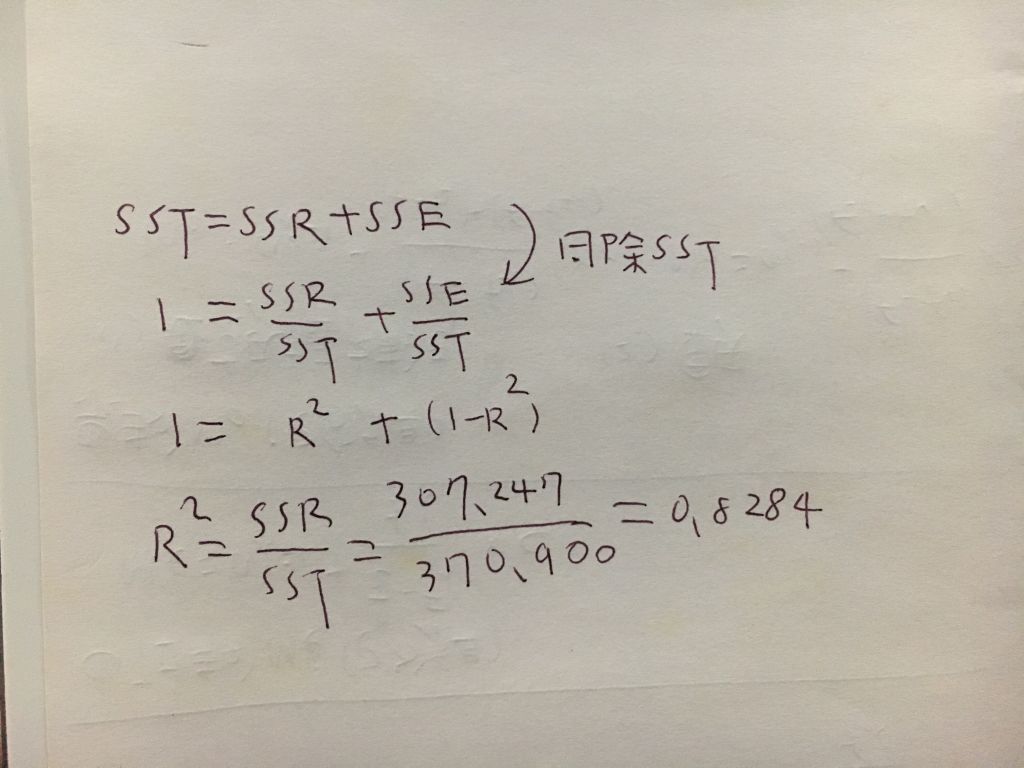 SST=SSR+SSE
同除SST
1 = SSR/SST + SSE/SST
1 = R² + (1-R²)
R² = SSR/SST = 307.247/370.900 = 0.8284